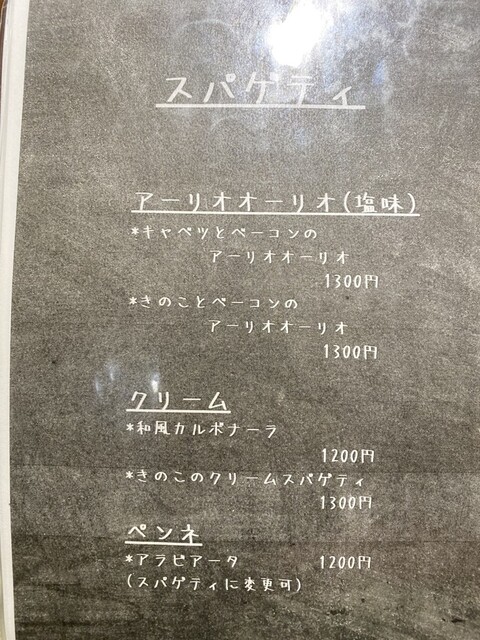 スパゲティ
アーリオオーリオ(塩味)
*キャベツとベーコンの
アーリオオーリオ
1300円
*きのことベーコンの
アーリオオーリオ
1300円
クリーム
*和風カルボナーラ
1200円
*きのこのクリームスパゲティ
1300円
ペンネ
*アラビアータ 1200円
(スパゲティに変更可)